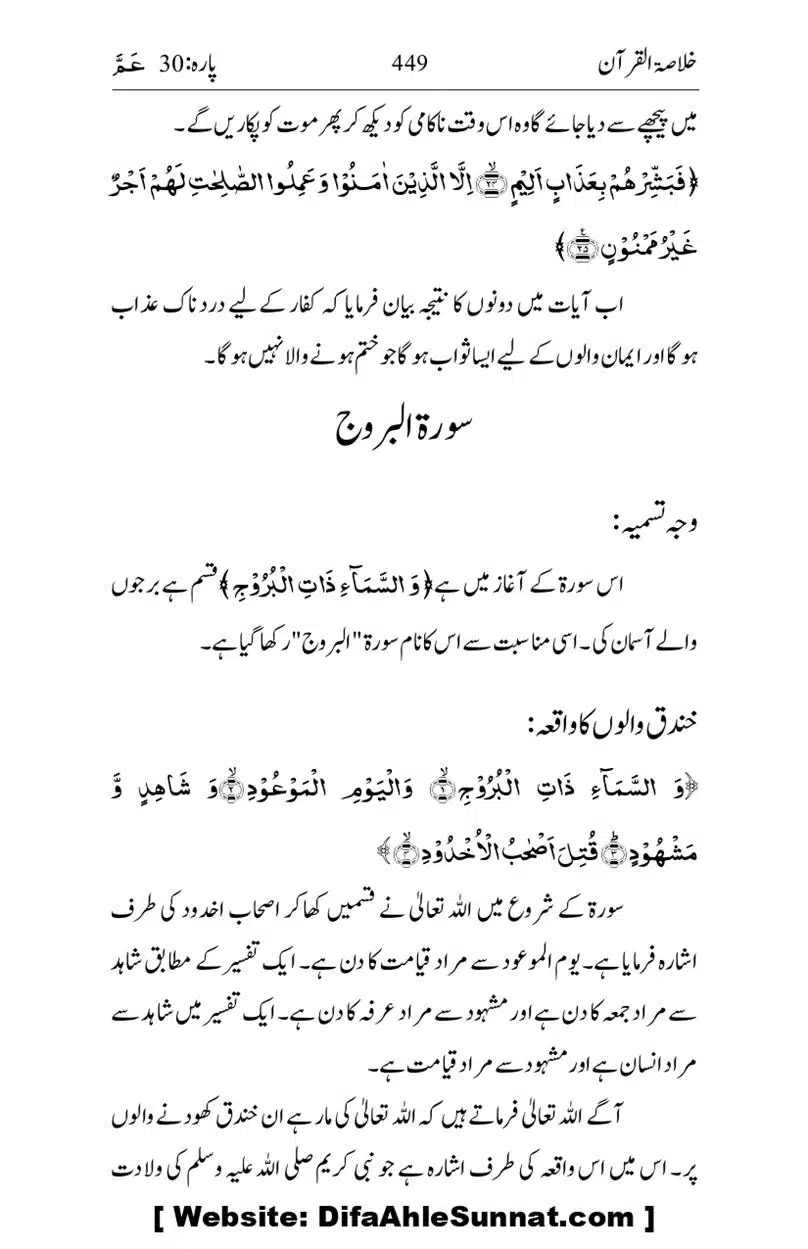 خلاصۃ القرآن 449 پارہ:30 عَمَّ
میں پیچھے سے دیا جائے گا وہ اس وقت ناکامی کو دیکھ کر پھر موت کو پکاریں گے۔
﴿فَبَشِّرْهُمْ بِعَذَابٍ اَلِیْمٍ ﴿۲۴﴾ اِلَّا الَّذِیْنَ اٰمَنُوْا وَ عَمِلُوا الصّٰلِحٰتِ لَهُمْ اَجْرٌ
غَیْرُ مَمْنُوْنٍ ﴿۲۵﴾﴾
اب آیات میں دونوں کا نتیجہ بیان فرمایا کہ کفار کے لیے دردناک عذاب
ہو گا اور ایمان والوں کے لیے ایسا ثواب ہو گا جو ختم ہونے والا نہیں ہو گا۔
سورۃ البروج
وجہ تسمیہ:
اس سورۃ کے آغاز میں ہے ﴿وَ السَّمَآءِ ذَاتِ الْبُرُوْجِ﴾ قسم ہے برجوں
والے آسمان کی۔ اسی مناسبت سے اس کا نام سورۃ "البروج" رکھا گیا ہے۔
خندق والوں کا واقعہ:
﴿وَ السَّمَآءِ ذَاتِ الْبُرُوْجِ ﴿۱﴾ وَ الْیَوْمِ الْمَوْعُوْدِ ﴿۲﴾ وَ شَاهِدٍ وَّ
مَشْهُوْدٍ ﴿۳﴾ قُتِلَ اَصْحٰبُ الْاُخْدُوْدِ ﴿۴﴾﴾
سورۃ کے شروع میں اللہ تعالیٰ نے قسمیں کھا کر اصحاب اخدود کی طرف
اشارہ فرمایا ہے۔ یوم الموعود سے مراد قیامت کا دن ہے۔ ایک تفسیر کے مطابق شاہد
سے مراد جمعہ کا دن ہے اور مشہود سے مراد عرفہ کا دن ہے۔ ایک تفسیر میں شاہد سے
مراد انسان ہے اور مشہود سے مراد قیامت ہے۔
آگے اللہ تعالیٰ فرماتے ہیں کہ اللہ تعالیٰ کی مار ہے ان خندق کھودنے والوں
پر۔ اس میں اس واقعہ کی طرف اشارہ ہے جو نبی کریم صلی اللہ علیہ وسلم کی ولادت
[ Website: DifaAhleSunnat.com ]